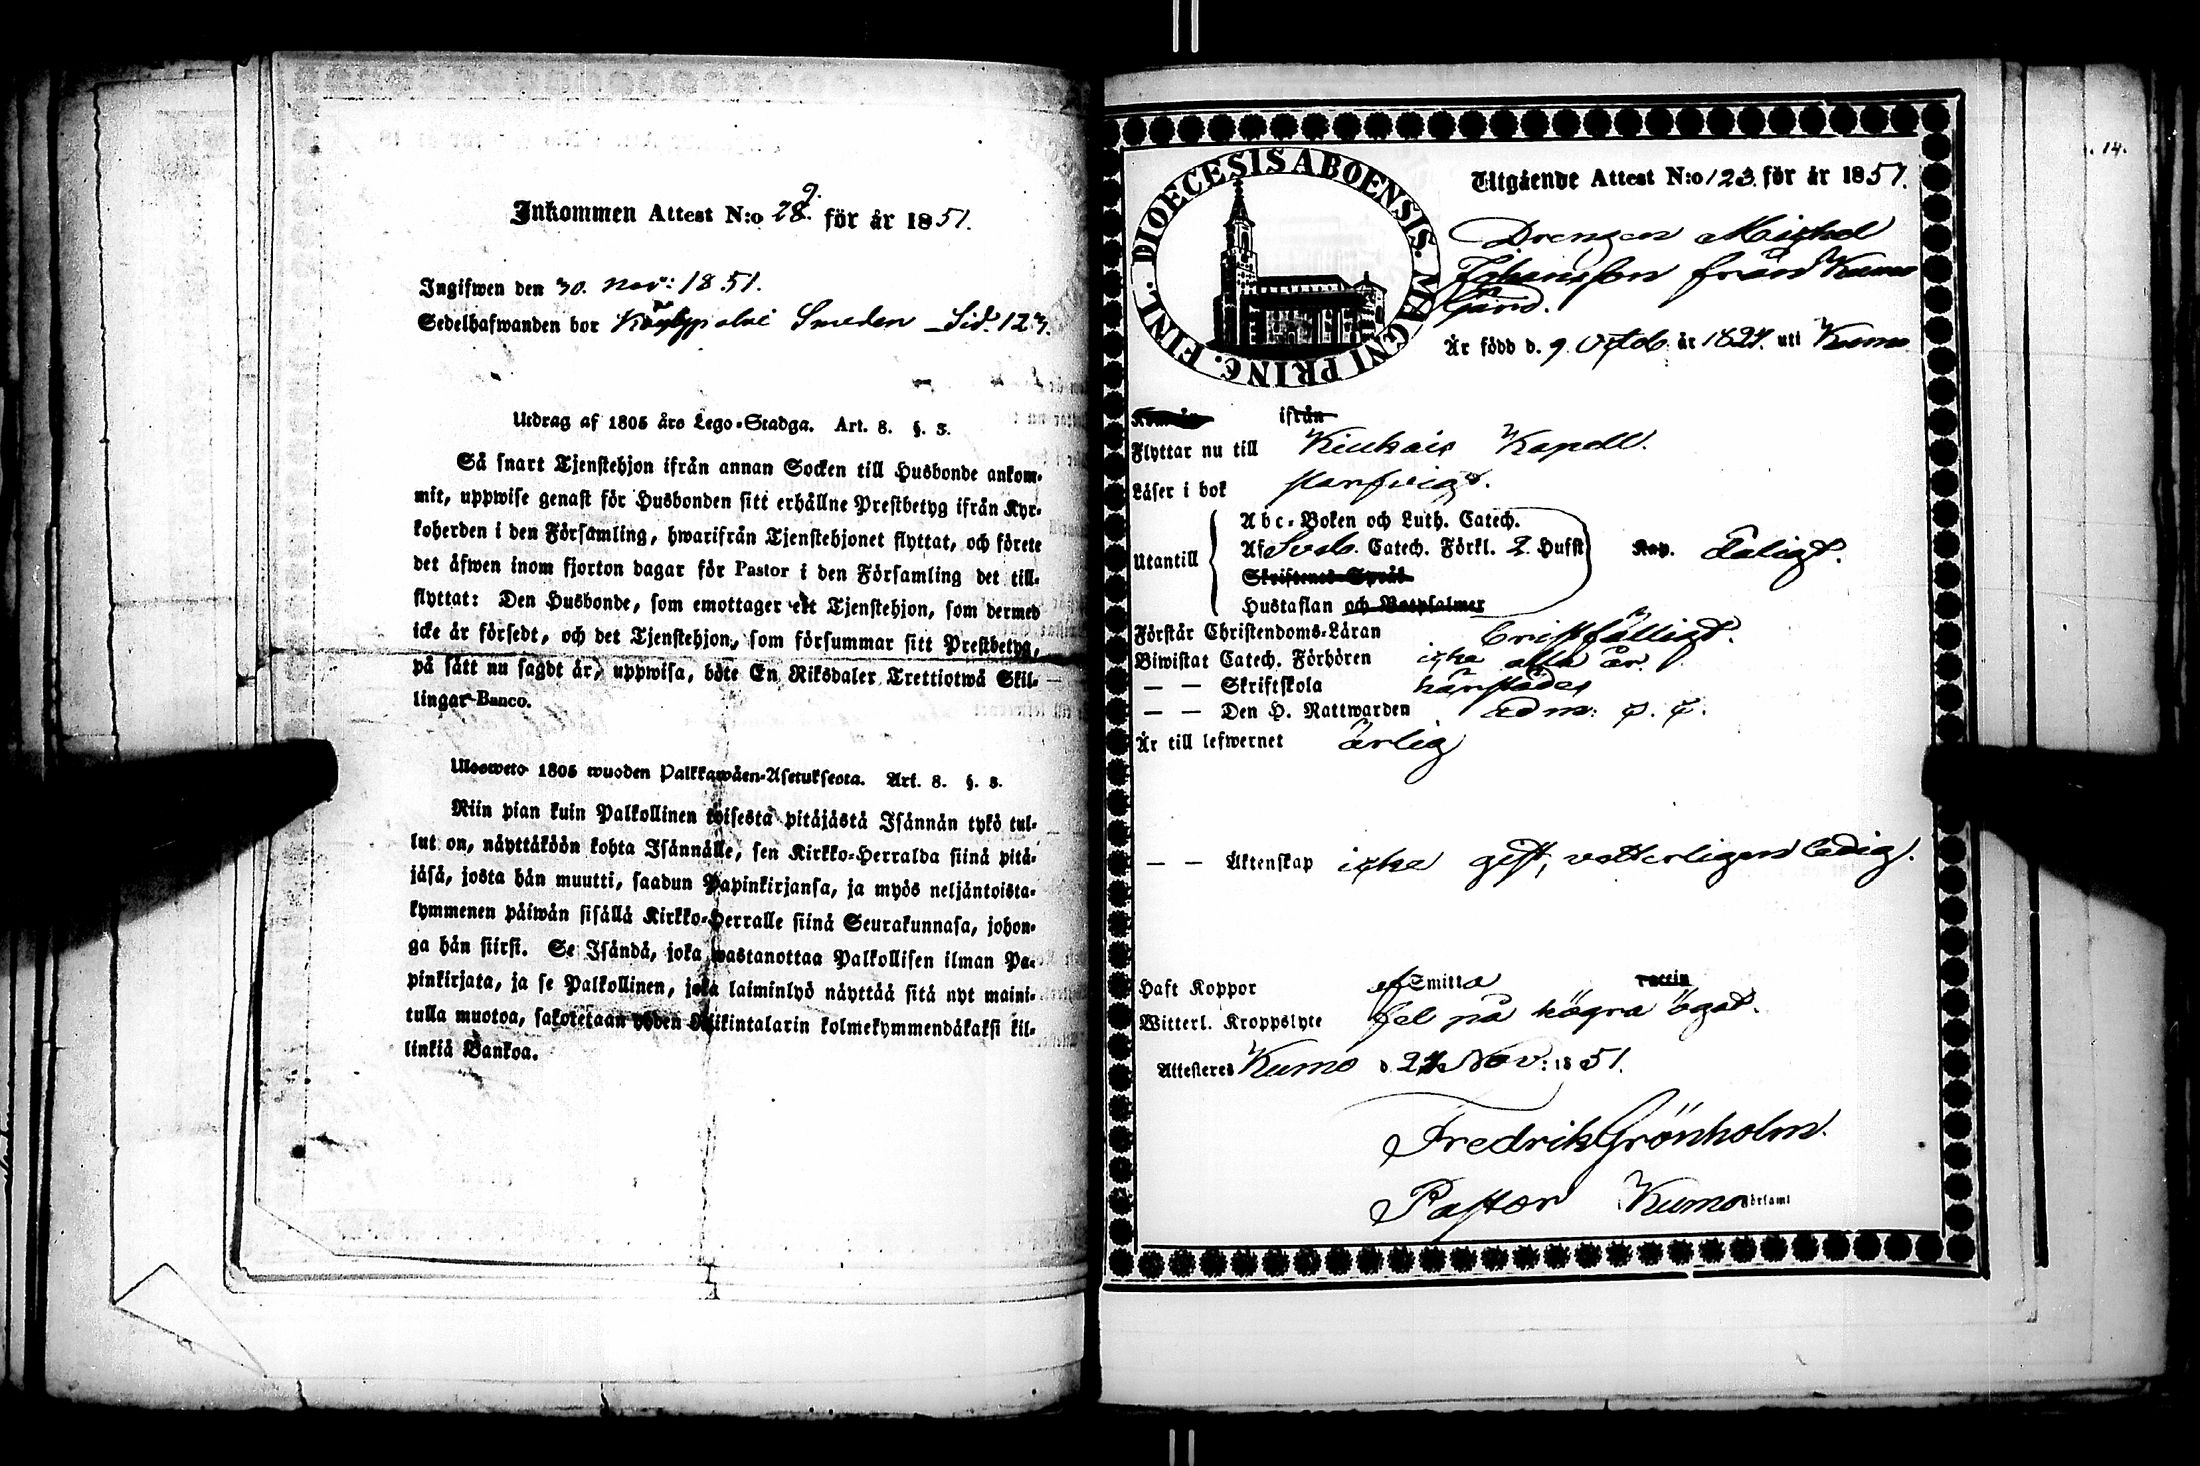 Inkommen Attest N:o 289. för år 1851.
Ingifwen den 30. nov: 1851.
Sedelhafwanden bor Smeden Sid. 123.
Utdrag af 1805 års Lego-Stadga. Art. 8. §. 3.
Så snart Tjenstehjon ifrån annan Socken till Husbonde ankom-
mit, uppwise genast för Husbonden sitt erhållne Prestbetyg ifrån Kyr-
koherden i den Församling, hwarifrån Tjenstehjonet flyttat, och förete
det äfwen inom fjorton dagar för Pastor i den Församling det till-
flyttat: Den Husbonde, som emottager ett Tjenstehjon, som dermed
icke är försedt, och det Tjenstehjon, som försummar sitt Prestbetyg,
på sätt nu sagdt är, uppwisa, böte En Riksdaler Trettiotwå Skil-
lingar Banco.
Ulosweto 1805 wuoden Palkkawäen-Asetuksesta. Art. 8. §. 3.
Niin pian kuin Palkollinen toisesta pitäjästä Isännän tykö tul-
lut on, näyttäköön kohta Isännälle, sen Kirkko-Herralda siinä pitä-
jäsä, josta hän muutti, saadun Papinkirjansa, ja myös neljäntoista-
kymmenen päiwän sisällä Kirkko-Herralle siinä Seurakunnasa, johon-
ga hän siirsi. Se Isändä, joka wastanottaa Palkollisen ilman Pa-
pinkirjata, ja se Palkollinen, joka laiminlyö näyttää sitä nyt maini-
tulla muotoa, sakotetaan yhden Riikintalarin kolmekymmendäkaksi kil-
linkiä Bankoa.
14.
DIOECESIS ABOENSIS. MAGNI PRINC. FINL.
Utgående Attest N:o 123. för år 1851.
Drengen Michel
Johansson från Kumo
Gård.
Är född d. 9 Octob. år 1827. uti Kumo
ifrån
Flyttar nu till Kiukais Kapell.
Läser i bok
Abc-Boken och Luth. Catech.
Utantill Af Sveb. Catech. Förkl. 2 Hufst Kap. daligt.
Skriftenes Språk
Hustaflan och Botpsalmer
Förstår Christendoms-Läran bristfälligt.
Biwistat Catech. Förhören icke alla år.
— — Skriftskola härstädes
— — Den H. Nattwarden adm:
Är till lefwernet ärlig
— — Äktenskap icke gift, vetterligen ledig.
Haft Koppor smitta vaccin
Witterl. Kroppslyte fel på högra ögat.
Attesteras Kumo d. Nov: 1851.
Fredrik Grönholm.
Pastor Kumo Församl